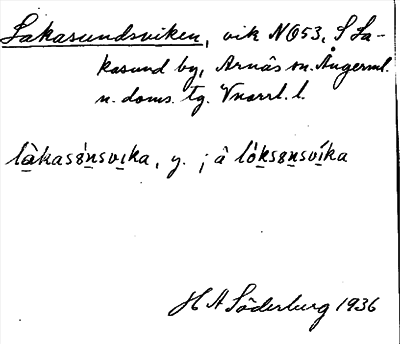 Lakasundsviken, vik NO53, S La-
kasund by, Arnäs sn. Ångerml.
n. doms. tg. Vnorrl. l.
làkasúnsvika, y. ; ä lóksúnsvíka
H A Söderberg 1936